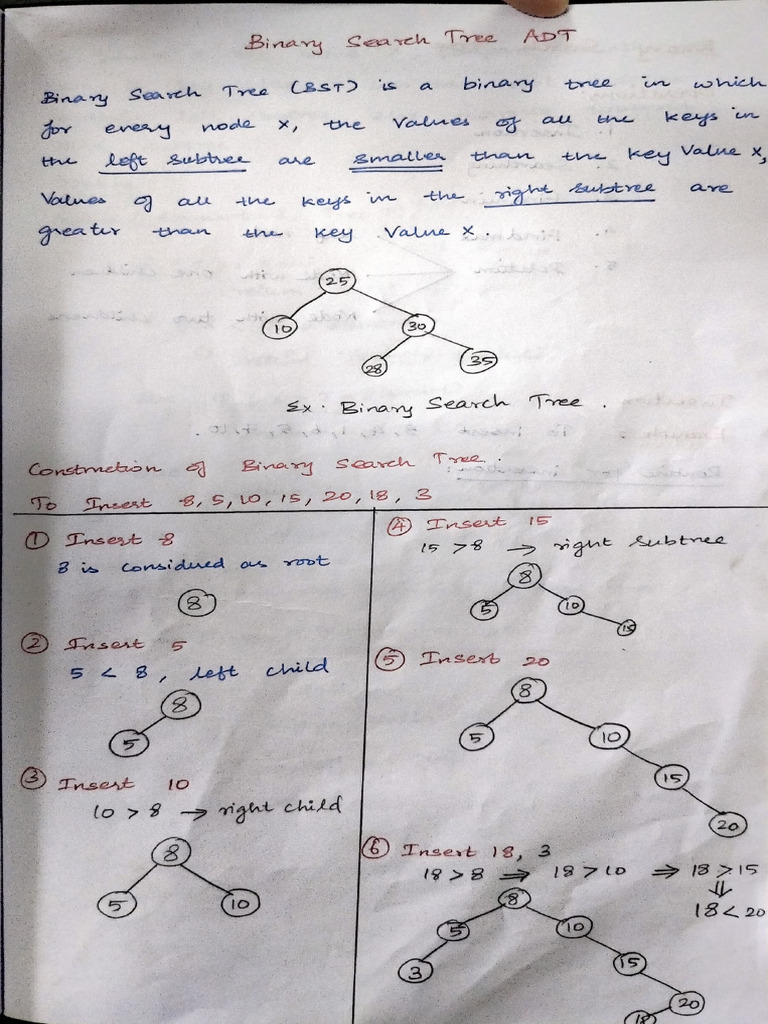 Binary Search Tree ADT
Binary Search Tree (BST) is a binary tree in which
for every node x, the values of all the keys in
the left subtree are smaller than the key value x,
values of all the keys in the right subtree are
greater than the key value x.
25
10 30
28 35
Ex. Binary Search Tree.
Construction of Binary Search Tree.
To Insert 8, 5, 10, 15, 20, 18, 3
① Insert 8
8 is considered as root
8
② Insert 5
5 < 8, left child
8
5
③ Insert 10
10 > 8 → right child
8
5 10
④ Insert 15
15 > 8 → right subtree
8
5 10
15
⑤ Insert 20
8
5 10
15
20
⑥ Insert 18, 3
18 > 8 ⇒ 18 > 10 ⇒ 18 > 15
⇓
18 < 20
8
5 10
3 15
20
18